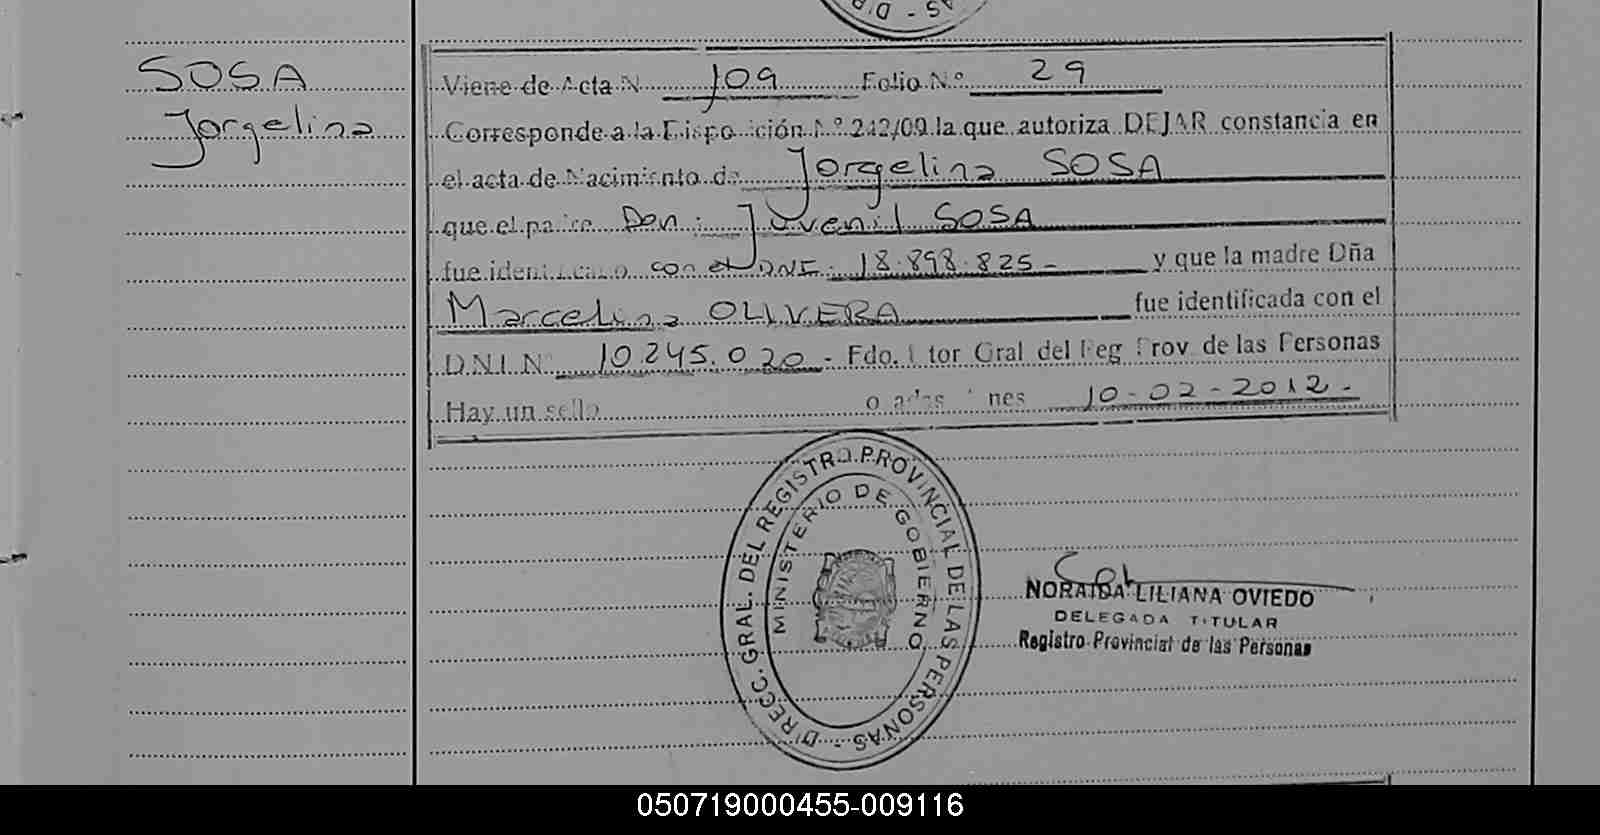 SOSA
Jorgelina
Viene de Acta N 109 Folio Nº 29
Corresponde a la Disposición Nº 242/09 la que autoriza DEJAR constancia en
el acta de Nacimiento de Jorgelina SOSA
que el padre Don: Juvenil SOSA
fue identificado con el DNI: 18.898.825- y que la madre Dña
Marcelina OLIVERA fue identificada con el
DNI Nº 10.245.020- Fdo. Gral del Reg Prov. de las Personas
Hay un sello 10-02-2012-
DIRECC. GRAL. DEL REGISTRO PROVINCIAL DE LAS PERSONAS -
MINISTERIO DE GOBIERNO
NORAIDA LILIANA OVIEDO
DELEGADA TITULAR
Registro Provincial de las Personas
050719000455-009116